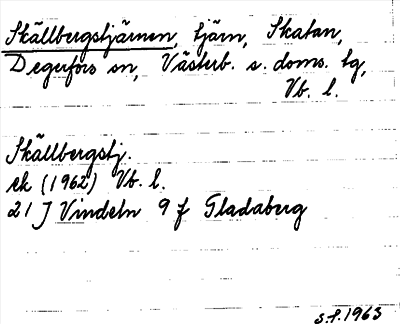 Skällbergstjärnen, tjärn, Skatan,
Degerfors sn, Västerb. s. doms. tg,
Vb. l.
Skällbergstj.
ek (1962) Vb. l.
21 J Vindeln 9 f Gladaberg
S.f. 1963